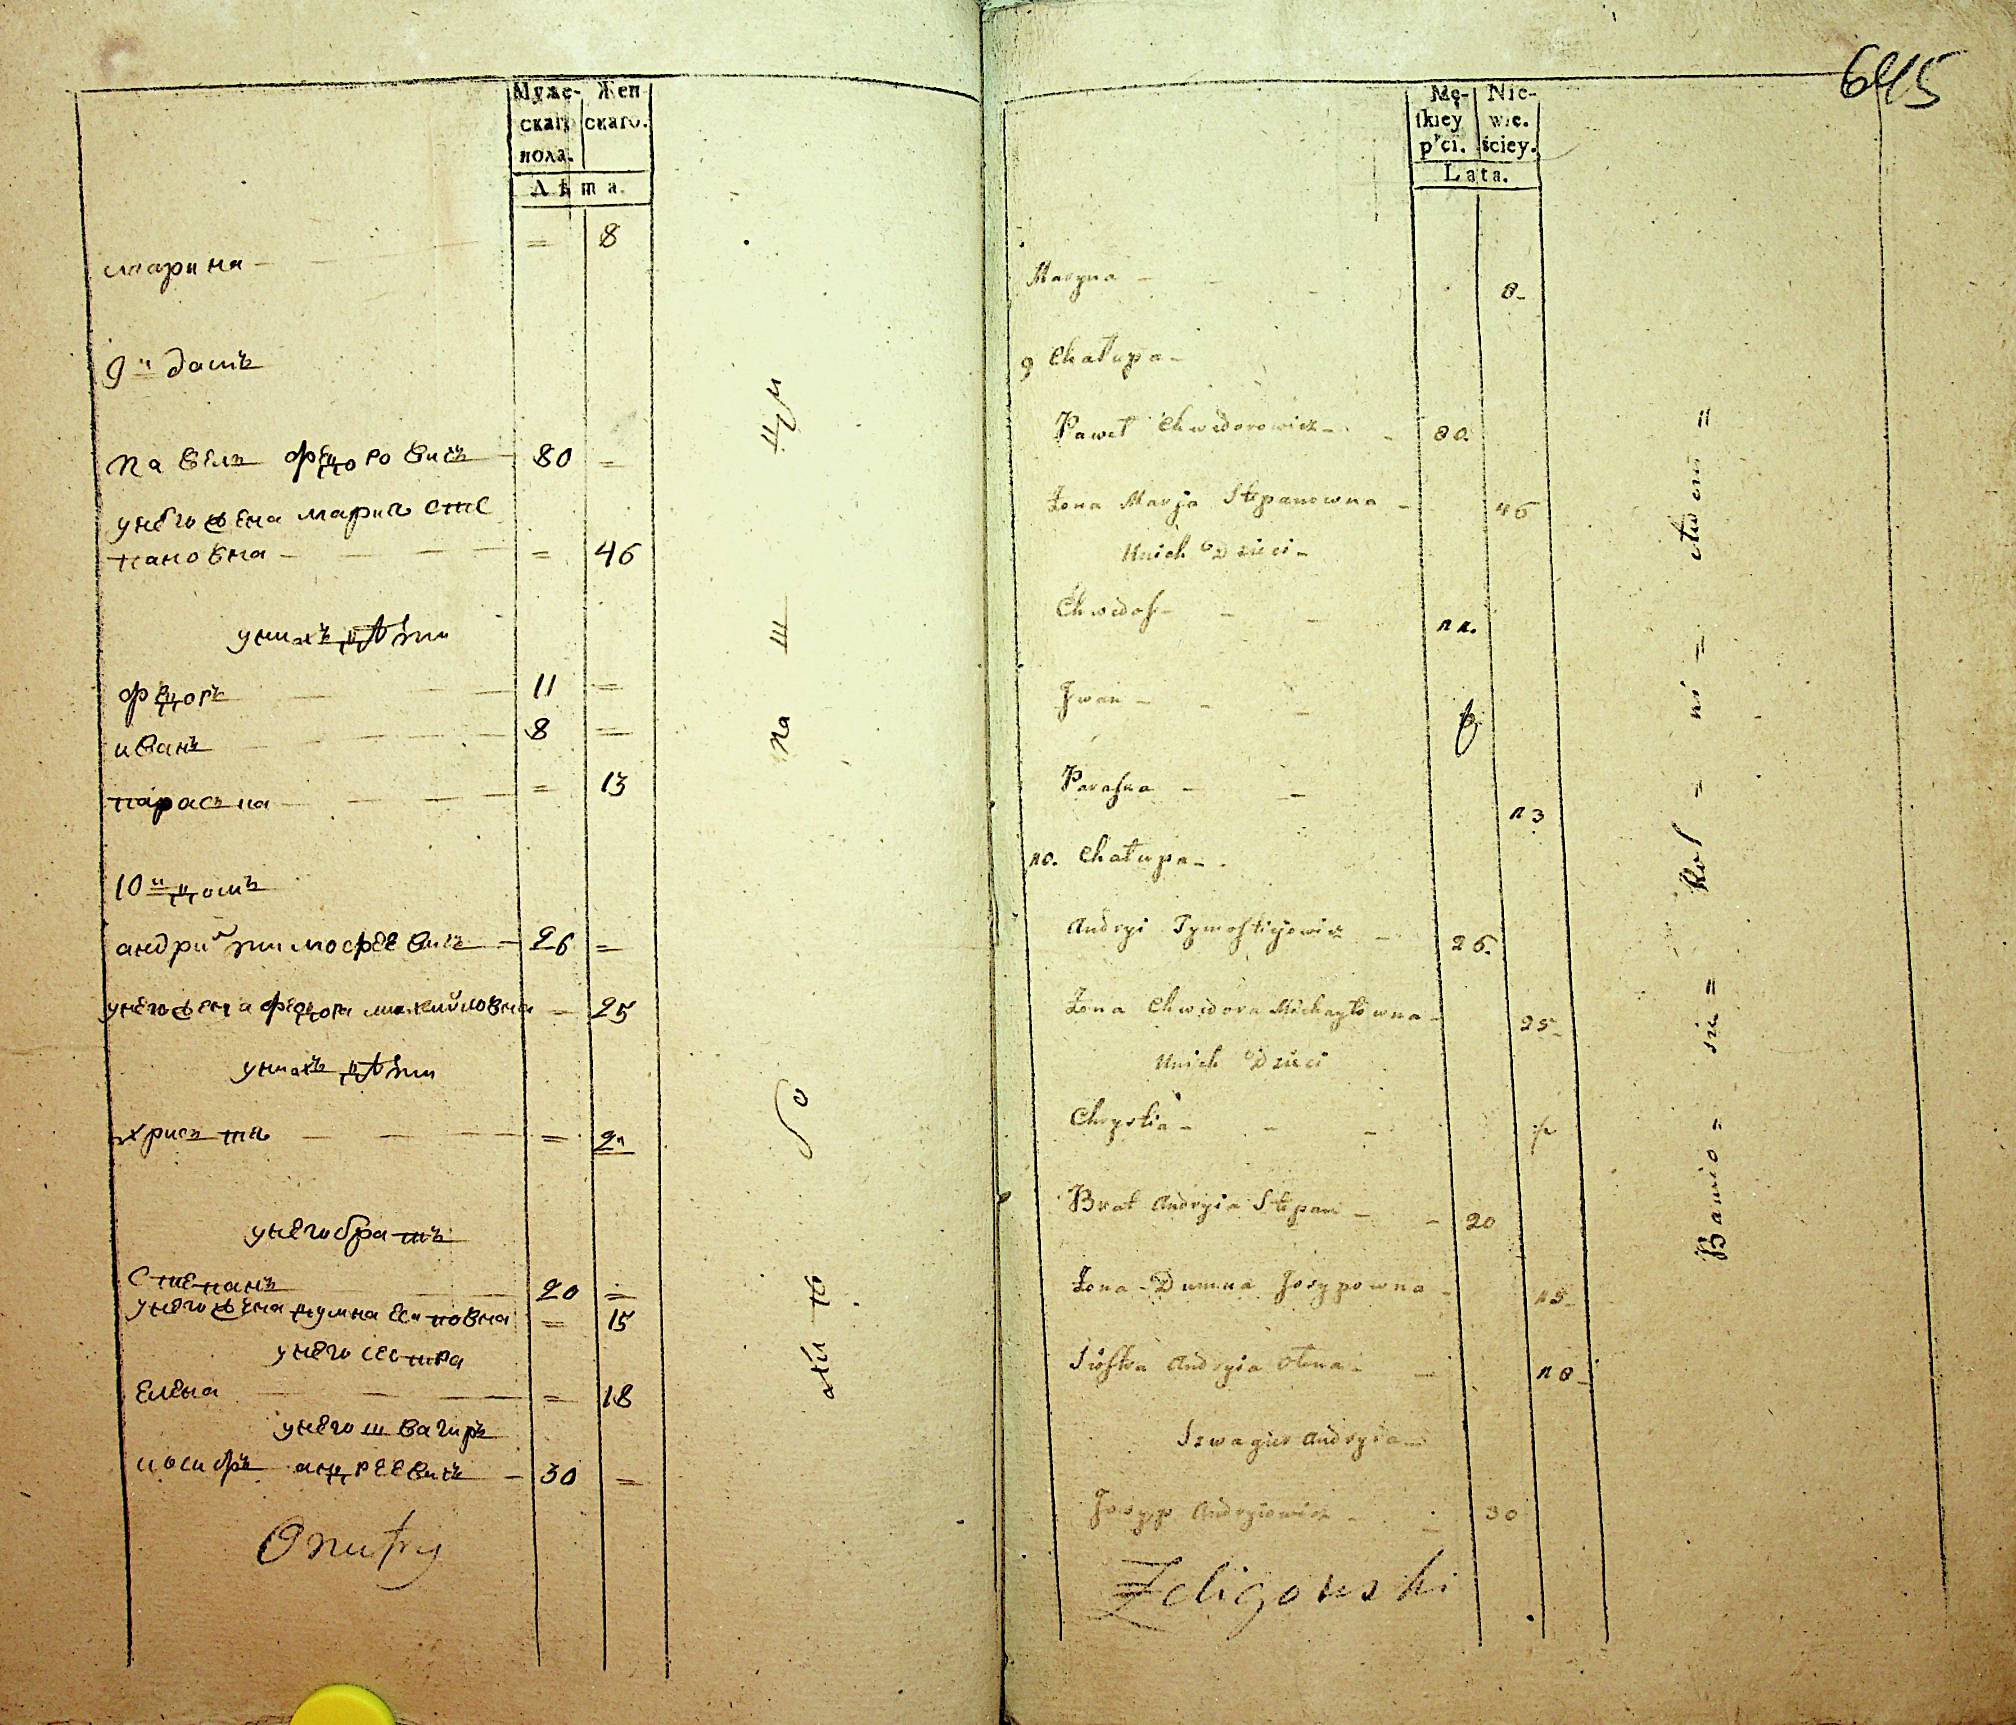 Муже- Жен
скаго скаго.
пола.
Лѣта.
марина — = 8
9й домъ
павелъ федоровичъ — 80 =
унего жена мария сте
пановна — = 46
унихъ дѣти
федоръ — 11 =
иванъ — 8 =
парасъка — = 13
10й домъ
андрий тимофеевичъ — 26 =
унего жена федора михайловна — 25
унихъ дѣти
христя — = 2
унего братъ
степанъ — 20 =
унего жена думна есиповна = 15
унего сестра
елена — = 18
унего швагиръ
иосифъ андреевичъ — 30 =
Onufry
645
Mę- Nie-
skiey wie-
płci. ściey.
Lata.
Maryna — 8
9 Chałupa
Paweł Chwedorowicz — 80
Żona Marja Stepanowna — 46
Unich Dzieci
Chwedor — 11.
Iwan — 8
Paraska — 13
10. Chałupa
Andryi Tymofieiowicz — 26.
Żona Chwedora Michayłowna — 25
Unich Dzieci
Chrystia — 2
Brat Andryia Stepan — 20
Żona Dumna Josypowna — 15
Siostra Andryia Olena — 18
Szwagier Andryia
Josyp Andryiowicz — 30
Żeligowski